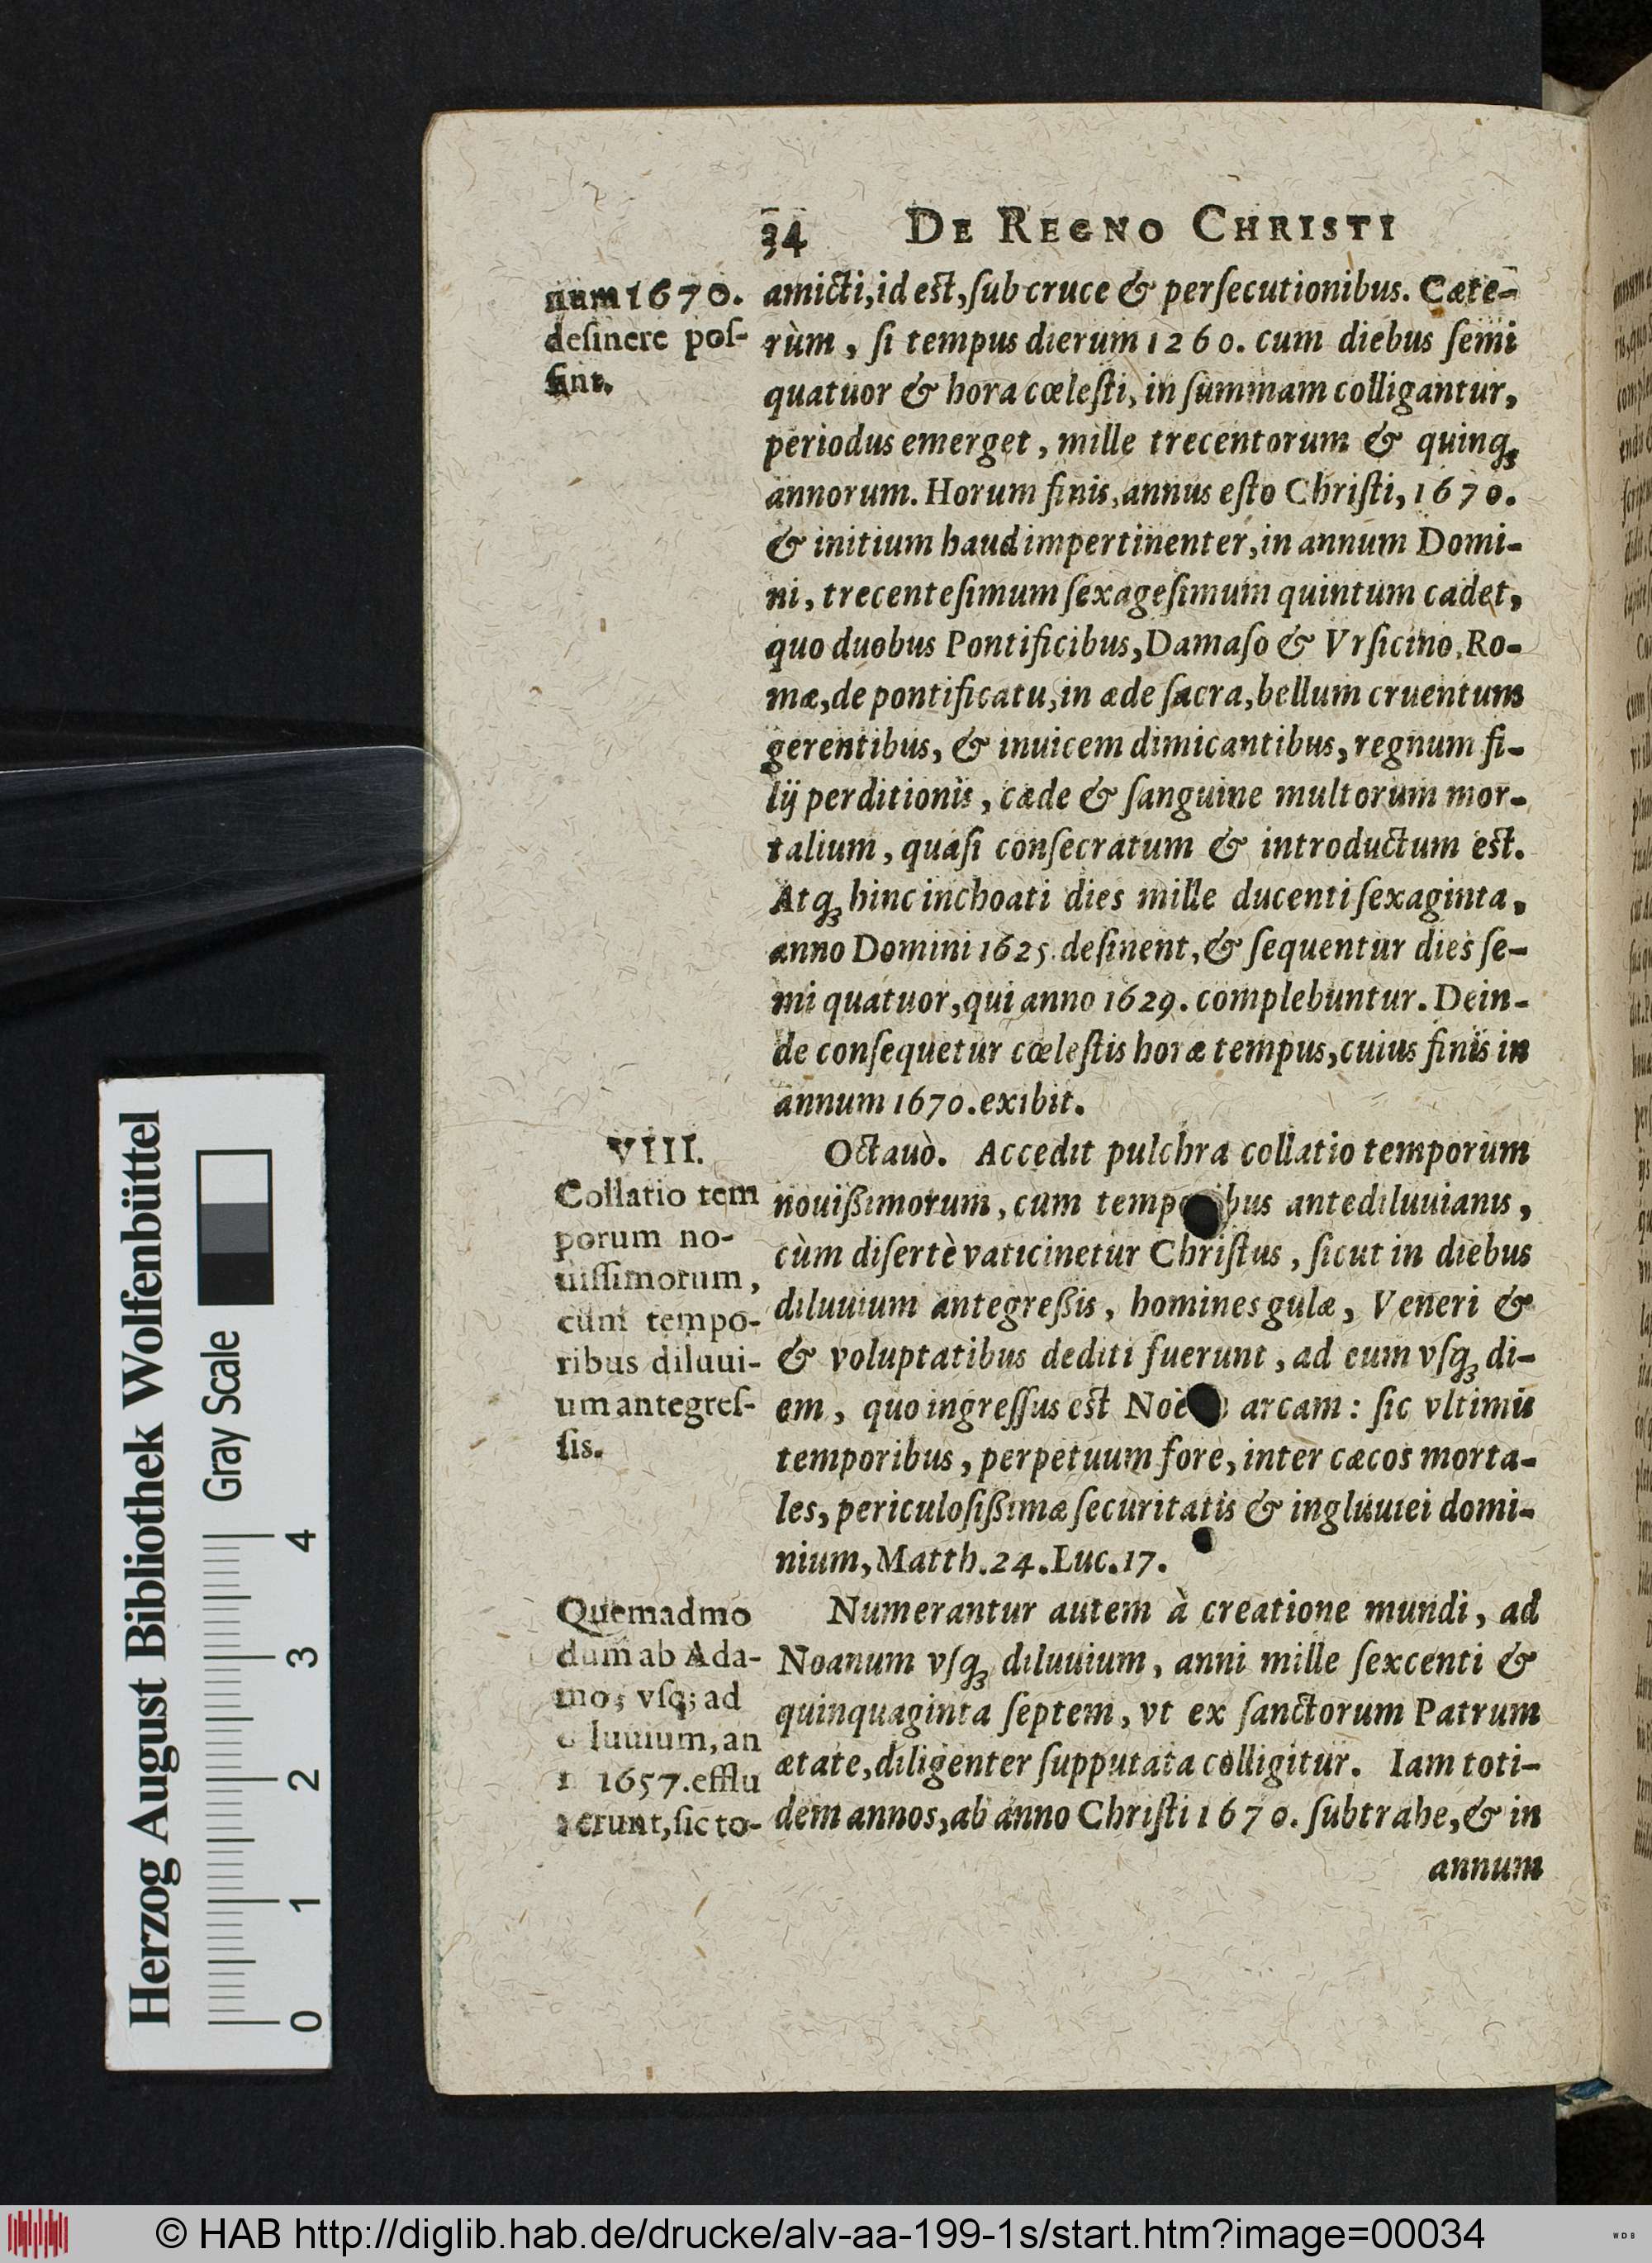 34 DE REGNO CHRISTI
num 1670.
desinere pos-
sint.
amicti, id est, sub cruce & persecutionibus. Cæte-
rùm, si tempus dierum 1260. cum diebus semi
quatuor & hora cœlesti, in summam colligantur,
periodus emerget, mille trecentorum & quinq;
annorum. Horum finis, annus esto Christi, 1670.
& initium haud impertinenter, in annum Domi-
ni, trecentesimum sexagesimum quintum cadet,
quo duobus Pontificibus, Damaso & Vrsicino, Ro-
mæ, de pontificatu, in æde sacra, bellum cruentum
gerentibus, & inuicem dimicantibus, regnum fi-
lij perditionis, cæde & sanguine multorum mor-
talium, quasi consecratum & introductum est.
Atq; hinc inchoati dies mille ducenti sexaginta,
anno Domini 1625. desinent, & sequentur dies se-
mi quatuor, qui anno 1629. complebuntur. Dein-
de consequetur cœlestis horæ tempus, cuius finis in
annum 1670. exibit.
VIII.
Collatio tem
porum no-
uissimorum,
cum tempo-
ribus diluui-
um antegres-
sis.
Octauò. Accedit pulchra collatio temporum
nouißimorum, cum temp bus antediluuianis,
cùm disertè vaticinetur Christus, sicut in diebus
diluuium antegreßis, homines gulæ, Veneri &
& voluptatibus dediti fuerunt, ad eum vsq; di-
em, quo ingressus est Noë arcam: sic vltimis
temporibus, perpetuum fore, inter cæcos morta-
les, periculosißimæ securitatis & ingluuiei domi-
nium, Matth. 24. Luc. 17.
Quemadmo
dum ab Ada-
mo, vsq; ad
luuium, an
1657. efflu
xerunt, sic to-
Numerantur autem à creatione mundi, ad
Noanum vsq; diluuium, anni mille sexcenti &
quinquaginta septem, vt ex sanctorum Patrum
ætate, diligenter supputata colligitur. Iam toti-
dem annos, ab anno Christi 1670. subtrahe, & in
annum
Herzog August Bibliothek Wolfenbüttel
Gray Scale
0 1 2 3 4
© HAB http://diglib.hab.de/drucke/alv-aa-199-1s/start.htm?image=00034
WDB